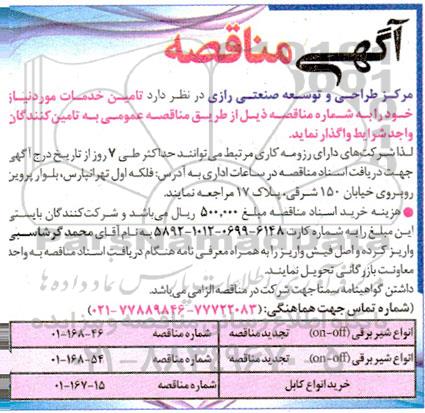 آگهی مناقصه
مرکز طراحی و توسعه صنعتی رازی در نظر دارد تامین خدمات موردنیاز
خود را به شماره مناقصه ذیل از طریق مناقصه عمومی به تامین کنندگان
واجد شرایط واگذار نماید.
لذا شرکت‌های دارای رزومه کاری مرتبط می‌توانند حداکثر طی ۷ روز از تاریخ درج آگهی
جهت دریافت اسناد مناقصه در ساعات اداری به آدرس: فلکه اول تهرانپارس، بلوار پروین
روبروی خیابان ۱۵۰ شرقی، پلاک ۱۷ مراجعه نمایند.
● هزینه خرید اسناد مناقصه مبلغ ۵۰۰,۰۰۰ ریال می‌باشد و شرکت کنندگان بایستی
این مبلغ را به شماره کارت ۶۱۴۸-۰۶۹۹-۱۰۱۲-۵۸۹۲ به نام آقای محمد گرشاسبی
واریز کرده و اصل فیش واریز را به همراه معرفی نامه هنگام دریافت اسناد مناقصه به واحد
معاونت بازرگانی تحویل نمایند.
داشتن گواهینامه سمتا جهت شرکت در مناقصه الزامی می‌باشد.
(شماره تماس جهت هماهنگی: ۷۷۷۲۲۰۸۳-۷۷۸۸۹۸۴۶-۰۲۱)
انواع شیر برقی (on-off) تجدید مناقصه شماره مناقصه ۴۶-۱۶۸-۰۱
انواع شیر برقی (on-off) تجدید مناقصه شماره مناقصه ۵۴-۱۶۸-۰۱
خرید انواع کابل شماره مناقصه ۱۵-۱۶۷-۰۱